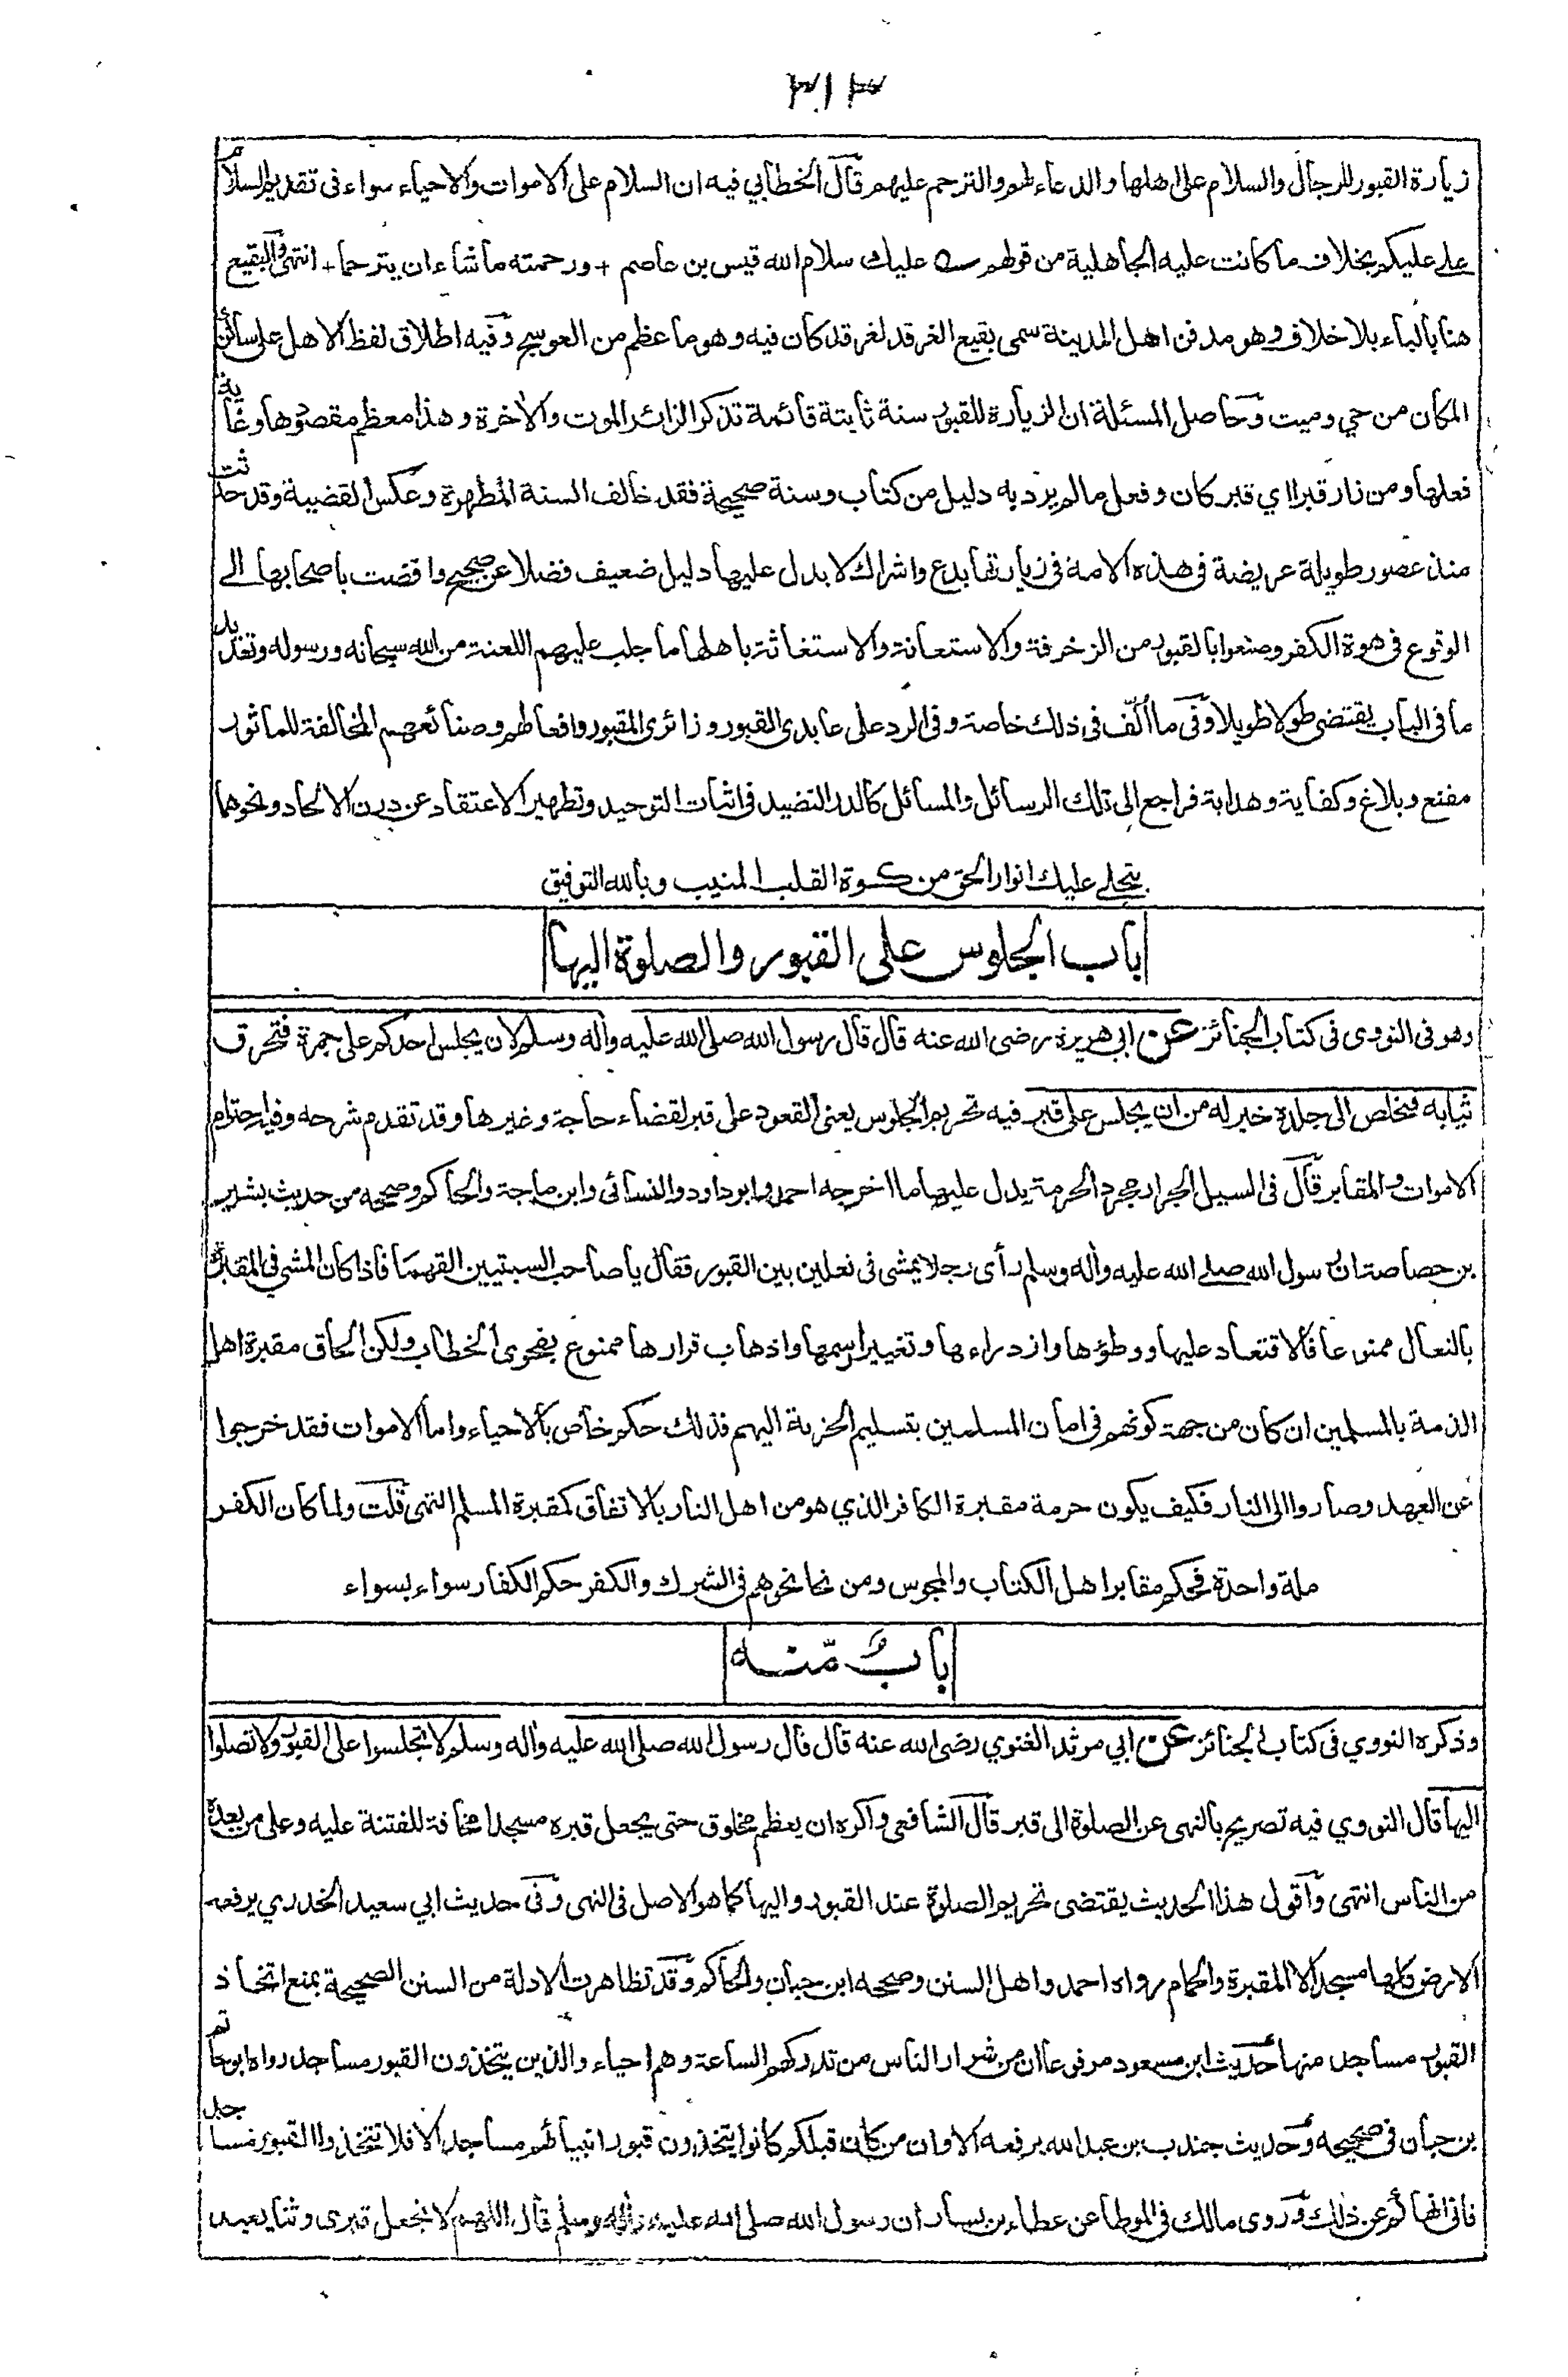 ٣١٣
زيارة القبور للرجال والسلام على اهلها والدعاء لهم والترحم عليهم قال الخطابي فيه ان السلام على الاموات والاحياء سواء فى تقديم السلام
على عليكم بخلاف ما كانت عليه الجاهلية من قولهم عليك سلام الله قيس بن عاصم + ورحمته ما شاء ان يترحما + انتهى والبقيع
هنا بالباء بلا خلاف وهو مدفن اهل المدينة سمى بقيع الغرقد لغرقد كان فيه وهو ما عظم من العوسج وفيه اطلاق لفظ الاهل على ساكن
المكان من حي وميت وحاصل المسئلة ان الزيارة للقبور سنة ثابتة قائمة تذكر الزائر الموت والاخرة وهذا معظم مقصودها وغاية
فعلها ومن زار قبرا اي قبر كان وفعل ما لم يرد به دليل من كتاب وسنة صحيحة فقد خالف السنة المطهرة وعكس القضية وقد حدثت
منذ عصور طويلة عريضة فى هذه الامة فى زيارتها بدع واشراك لا يدل عليها دليل ضعيف فضلا عن صحيح وافضت باصحابها الى
الوقوع فى هوة الكفر وصنعوا بالقبور من الزخرفة والاستعانة والاستغاثة باهلها ما جلب عليهم اللعنة من الله سبحانه ورسوله وتعديل
ما فى الباب يقتضى طولا طويلا وفى ما الف فى ذلك خاصة وفى الرد على عابدى القبور وزائرى المقبور وافعالهم وصنائعهم المخالفة للماثور
مقنع وبلاغ وكفاية وهداية فراجع الى تلك الرسائل والمسائل كالدر النضيد فى اثبات التوحيد وتطهير الاعتقاد عن درن الالحاد ونحوهما
يتجلى عليك انوار الحق من كوة القلب المنيب وبالله التوفيق
باب الجلوس على القبور والصلوة اليها
وهو فى النووى فى كتاب الجنائز عن ابى هريرة رضى الله عنه قال قال رسول الله صلى الله عليه واله وسلم لان يجلس احدكم على جمرة فتحرق
ثيابه فتخلص الى جلده خير له من ان يجلس على قبر فيه تحريم الجلوس يعنى القعود على قبر لقضاء حاجة وغيرها وقد تقدم شرحه وفيه احترام
الاموات والمقابر قال فى السيل الجرار مجرد الحرمة يدل عليها ما اخرجه احمد وابو داود والنسائى وابن ماجة والحاكم وصححه من حديث بشير
بن خصاصة ان رسول الله صلى الله عليه واله وسلم رأى رجلا يمشى فى نعلين بين القبور فقال يا صاحب السبتيين القهما فاذا كان المشي فى المقبرة
بالنعال ممنوعا فالاقتعاد عليها ووطؤها وازدراءها وتغيير اسمها واذهاب قرارها ممنوع بفحوى الخطاب ولكن الحاق مقبرة اهل
الذمة بالمسلمين ان كان من جهة كونهم فى امان المسلمين بتسليم الجزية اليهم فذلك حكم خاص بالاحياء واما الاموات فقد خرجوا
عن العهد وصاروا الى النار فكيف يكون حرمة مقبرة الكافر الذي هو من اهل النار بالاتفاق كمقبرة المسلم انتهى قلت ولما كان الكفر
ملة واحدة فحكم مقابر اهل الكتاب والمجوس ومن نحا نحوهم فى الشرك والكفر حكم الكفار سواء بسواء
باب منه
وذكره النووي فى كتاب الجنائز عن ابي مرثد الغنوي رضى الله عنه قال قال رسول الله صلى الله عليه واله وسلم لا تجلسوا على القبور ولا تصلوا
اليها قال النووي فيه تصريح بالنهى عن الصلوة الى قبر قال الشافعي واكره ان يعظم مخلوق حتى يجعل قبره مسجدا مخافة للفتنة عليه وعلى من بعده
من الناس انتهى واقول هذا الحديث يقتضى تحريم الصلوة عند القبور واليها كما هو الاصل فى النهى وفى حديث ابي سعيد الخدري يرفعه
الارض كلها مسجد الا المقبرة والحمام رواه احمد واهل السنن وصححه ابن حبان والحاكم وقد تظاهرت الادلة من السنن الصحيحة بمنع اتخاذ
القبور مساجد منها حديث ابن مسعود مرفوعا ان من شرار الناس من تدركهم الساعة وهم احياء والذين يتخذون القبور مساجد رواه ابو حاتم
بن حبان فى صحيحه وحديث جندب بن عبد الله يرفعه الا وان من كان قبلكم كانوا يتخذون قبور انبيائهم مساجد الا فلا تتخذوا القبور مساجد
فانى انهاكم عن ذلك وروى مالك فى الموطا عن عطاء بن يسار ان رسول الله صلى الله عليه واله وسلم قال اللهم لا تجعل قبرى وثنا يعبد